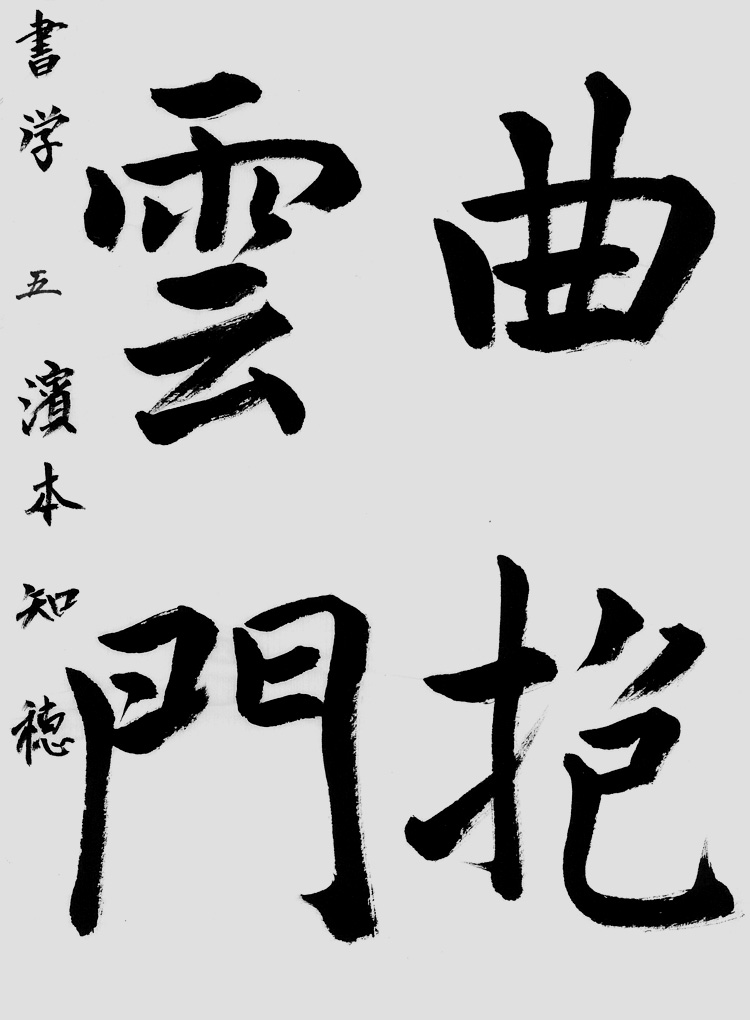 曲抱
雲門
書学 五 濱本知穂